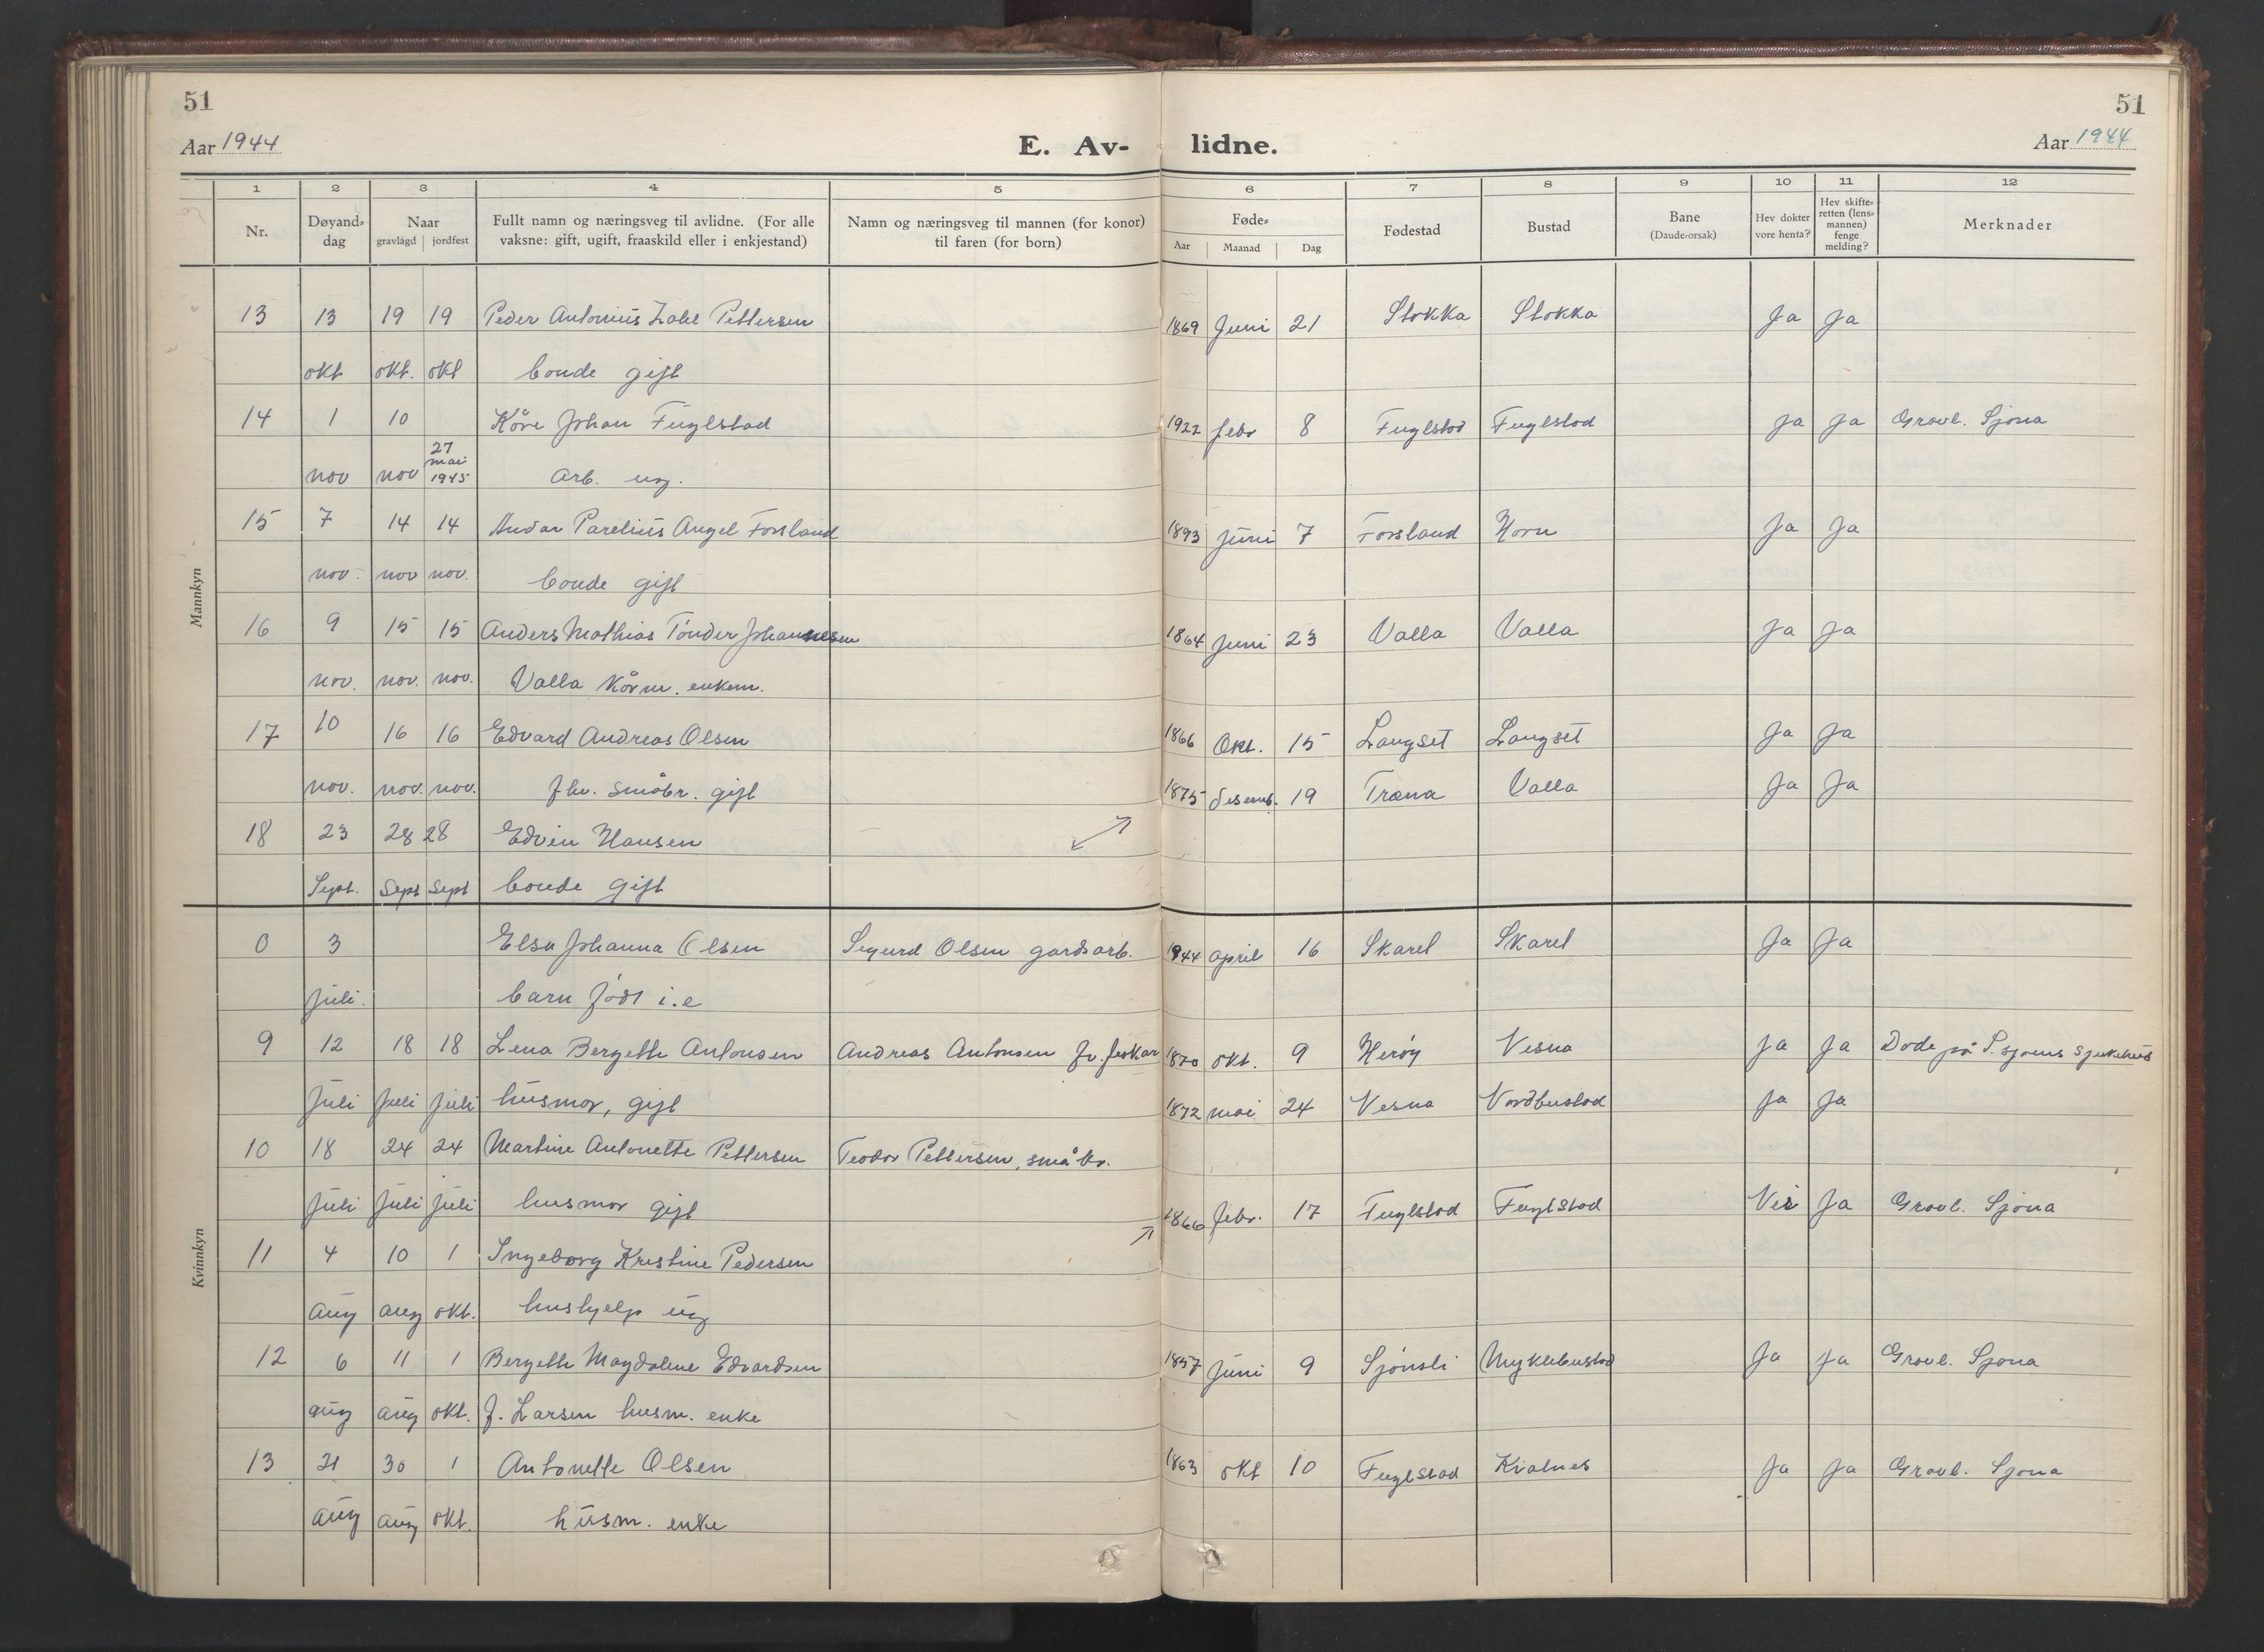 51 51
Aar 1944 E. Av- lidne. Aar 1944
1 2 3 4 5 6 7 8 9 10 11 12
Nr. Døyand-dag Naar gravlagd jordfest Fullt namn og næringsveg til avlidne. (For alle vaksne: gift, ugift, fraaskild eller i enkjestand) Namn og næringsveg til mannen (for konor) til faren (for born) Føde- Aar Maanad Dag Fødestad Bustad Bane (Daude-orsak) Hev dokter vore henta? Hev skifte-retten (lens-mannen) fenge melding? Merknader
Mannkyn
13 13 19 19 Peder Antonius Zahl Pettersen 1869 Juni 21 Stokka Stokka Ja Ja
okt okt. okt bonde gift
14 1 10 Kåre Johan Fuglstad 1922 febr 8 Fuglstad Fuglstad Ja Ja Gravl. Sjona
nov nov 27 mai 1945 arb. ug.
15 7 14 14 Parelius Angel Forsland 1893 juni 7 Forsland Horn Ja Ja
nov. nov nov. bonde gift
16 9 15 15 Anders Mathias Tönder Johannesen 1864 juni 23 Valla Valla Ja Ja
nov. nov. nov. Valla kårm. enkem.
17 10 16 16 Edvard Andreas Olsen 1866 Okt. 15 Langset Langset Ja Ja
nov. nov. nov. fhv. småbr. gift 1875 desemb. 19 Træna Valla Ja Ja
18 23 28 28 Edvin Hansen
Sept. Sept Sept bonde gift
Kvinnkyn
0 3 Elsa Johanna Olsen Sigurd Olsen gardsarb. 1944 april 16 Skarel Skarel Ja Ja
juli. barn födt i.e
9 12 18 18 Lena Bergette Antonsen Andreas Antonsen fv. fiskar 1870 okt. 9 Heröy Vesna Ja Ja Döde på S.sjoens sjukehus
juli juli juli husmor, gift 1872 mai 24 Vesna Nordbustad Ja Ja
10 18 24 24 Martine Antonette Pettersen Teodor Pettersen, småbr.
juli juli juli husmor gift 1866 febr. 17 Fuglstad Fuglstad Nei Ja Gravl. Sjona
11 4 10 1 Ingeborg Kristine Pedersen
aug aug okt. hushjelp ug
12 6 11 1 Bergette Magdalene Edvardsen 1857 juni 9 Sjönsli Myklebustad Ja Ja Gravl. Sjona
aug aug okt. f. Larsen husm. enke
13 21 30 1 Antonette Olsen 1863 okt 10 Fuglstad Kvalnes Ja Ja Gravl. Sjona
aug aug okt. husm. enke